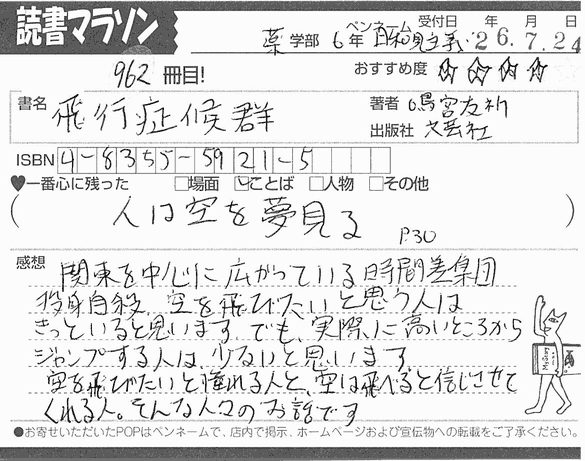 読書マラソン
ペンネーム 受付日 年 月 日
薬 学部 6年 日和見主義 '26.7.24
962 冊目!
おすすめ度 ☆ ☆ ☆ ☆ ☆
書名 飛行症候群
著者 嶋宮友祈
出版社 文芸社
ISBN 4-8355-5921-5
♥一番心に残った □場面 ☑ことば □人物 □その他
( 人は空を夢見る P30 )
感想 関東を中心に広がっている時間差集団
投身自殺。空を飛びたいと思う人は
きっといると思います。でも、実際に高いところから
ジャンプする人は、少ないと思います。
空を飛びたいと憧れる人と、空は飛べると信じさせて
くれる人。そんな人々のお話です
●お寄せいただいたPOPはペンネームで、店内で掲示、ホームページおよび宣伝物への転載をご了承ください。